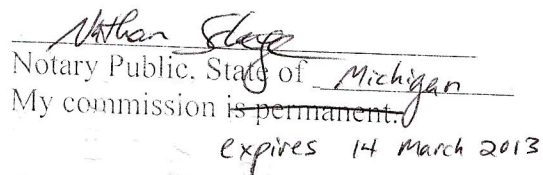 Nathan
Notary Public. State of Michigan
My commission is permanent.
expires 14 March 2013